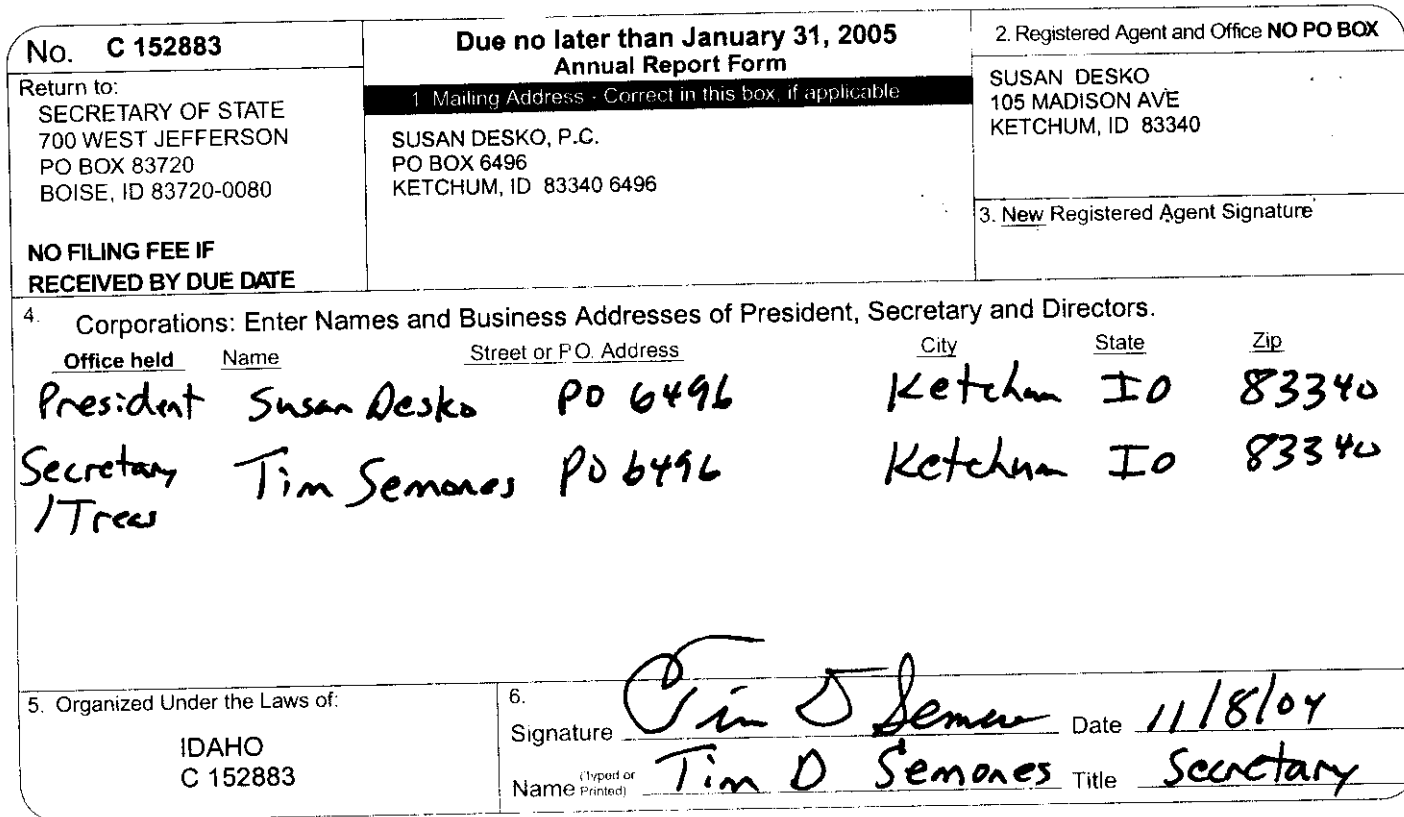 No. C 152883
Return to:
SECRETARY OF STATE
700 WEST JEFFERSON
PO BOX 83720
BOISE, ID 83720-0080
NO FILING FEE IF
RECEIVED BY DUE DATE
Due no later than January 31, 2005
Annual Report Form
1 Mailing Address - Correct in this box, if applicable
SUSAN DESKO, P.C.
PO BOX 6496
KETCHUM, ID 83340 6496
2. Registered Agent and Office NO PO BOX
SUSAN DESKO
105 MADISON AVE
KETCHUM, ID 83340
3. New Registered Agent Signature
4. Corporations: Enter Names and Business Addresses of President, Secretary and Directors.
Office held Name Street or P.O. Address City State Zip
President Susan Desko PO 6496 Ketchum ID 83340
Secretary Tim Semones PO 6496 Ketchum ID 83340
/Treas
5. Organized Under the Laws of:
IDAHO
C 152883
6.
Signature Tim D Semones Date 11/8/04
Name (Typed or Printed) Tim D Semones Title Secretary